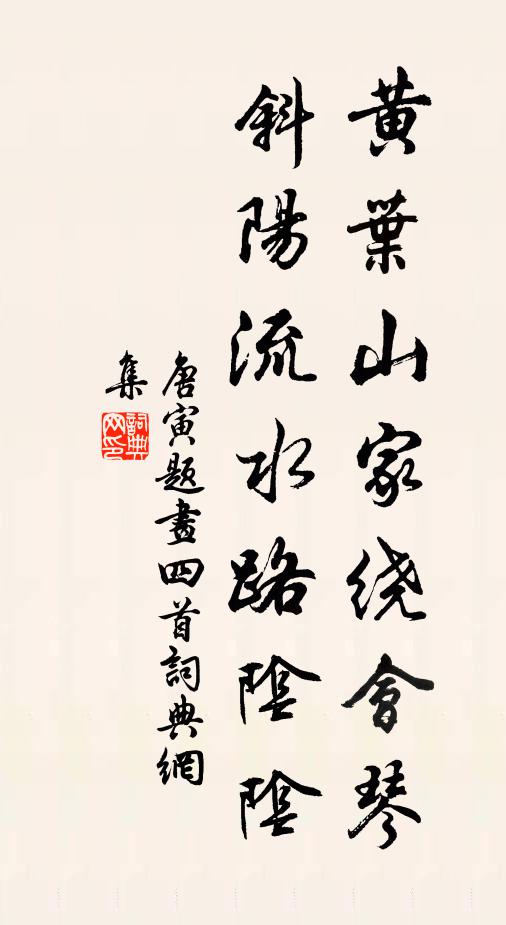 黃葉山家绕會琴
斜陽流水路陰陰
唐寅題畫四首詞典網
集
詞典網印